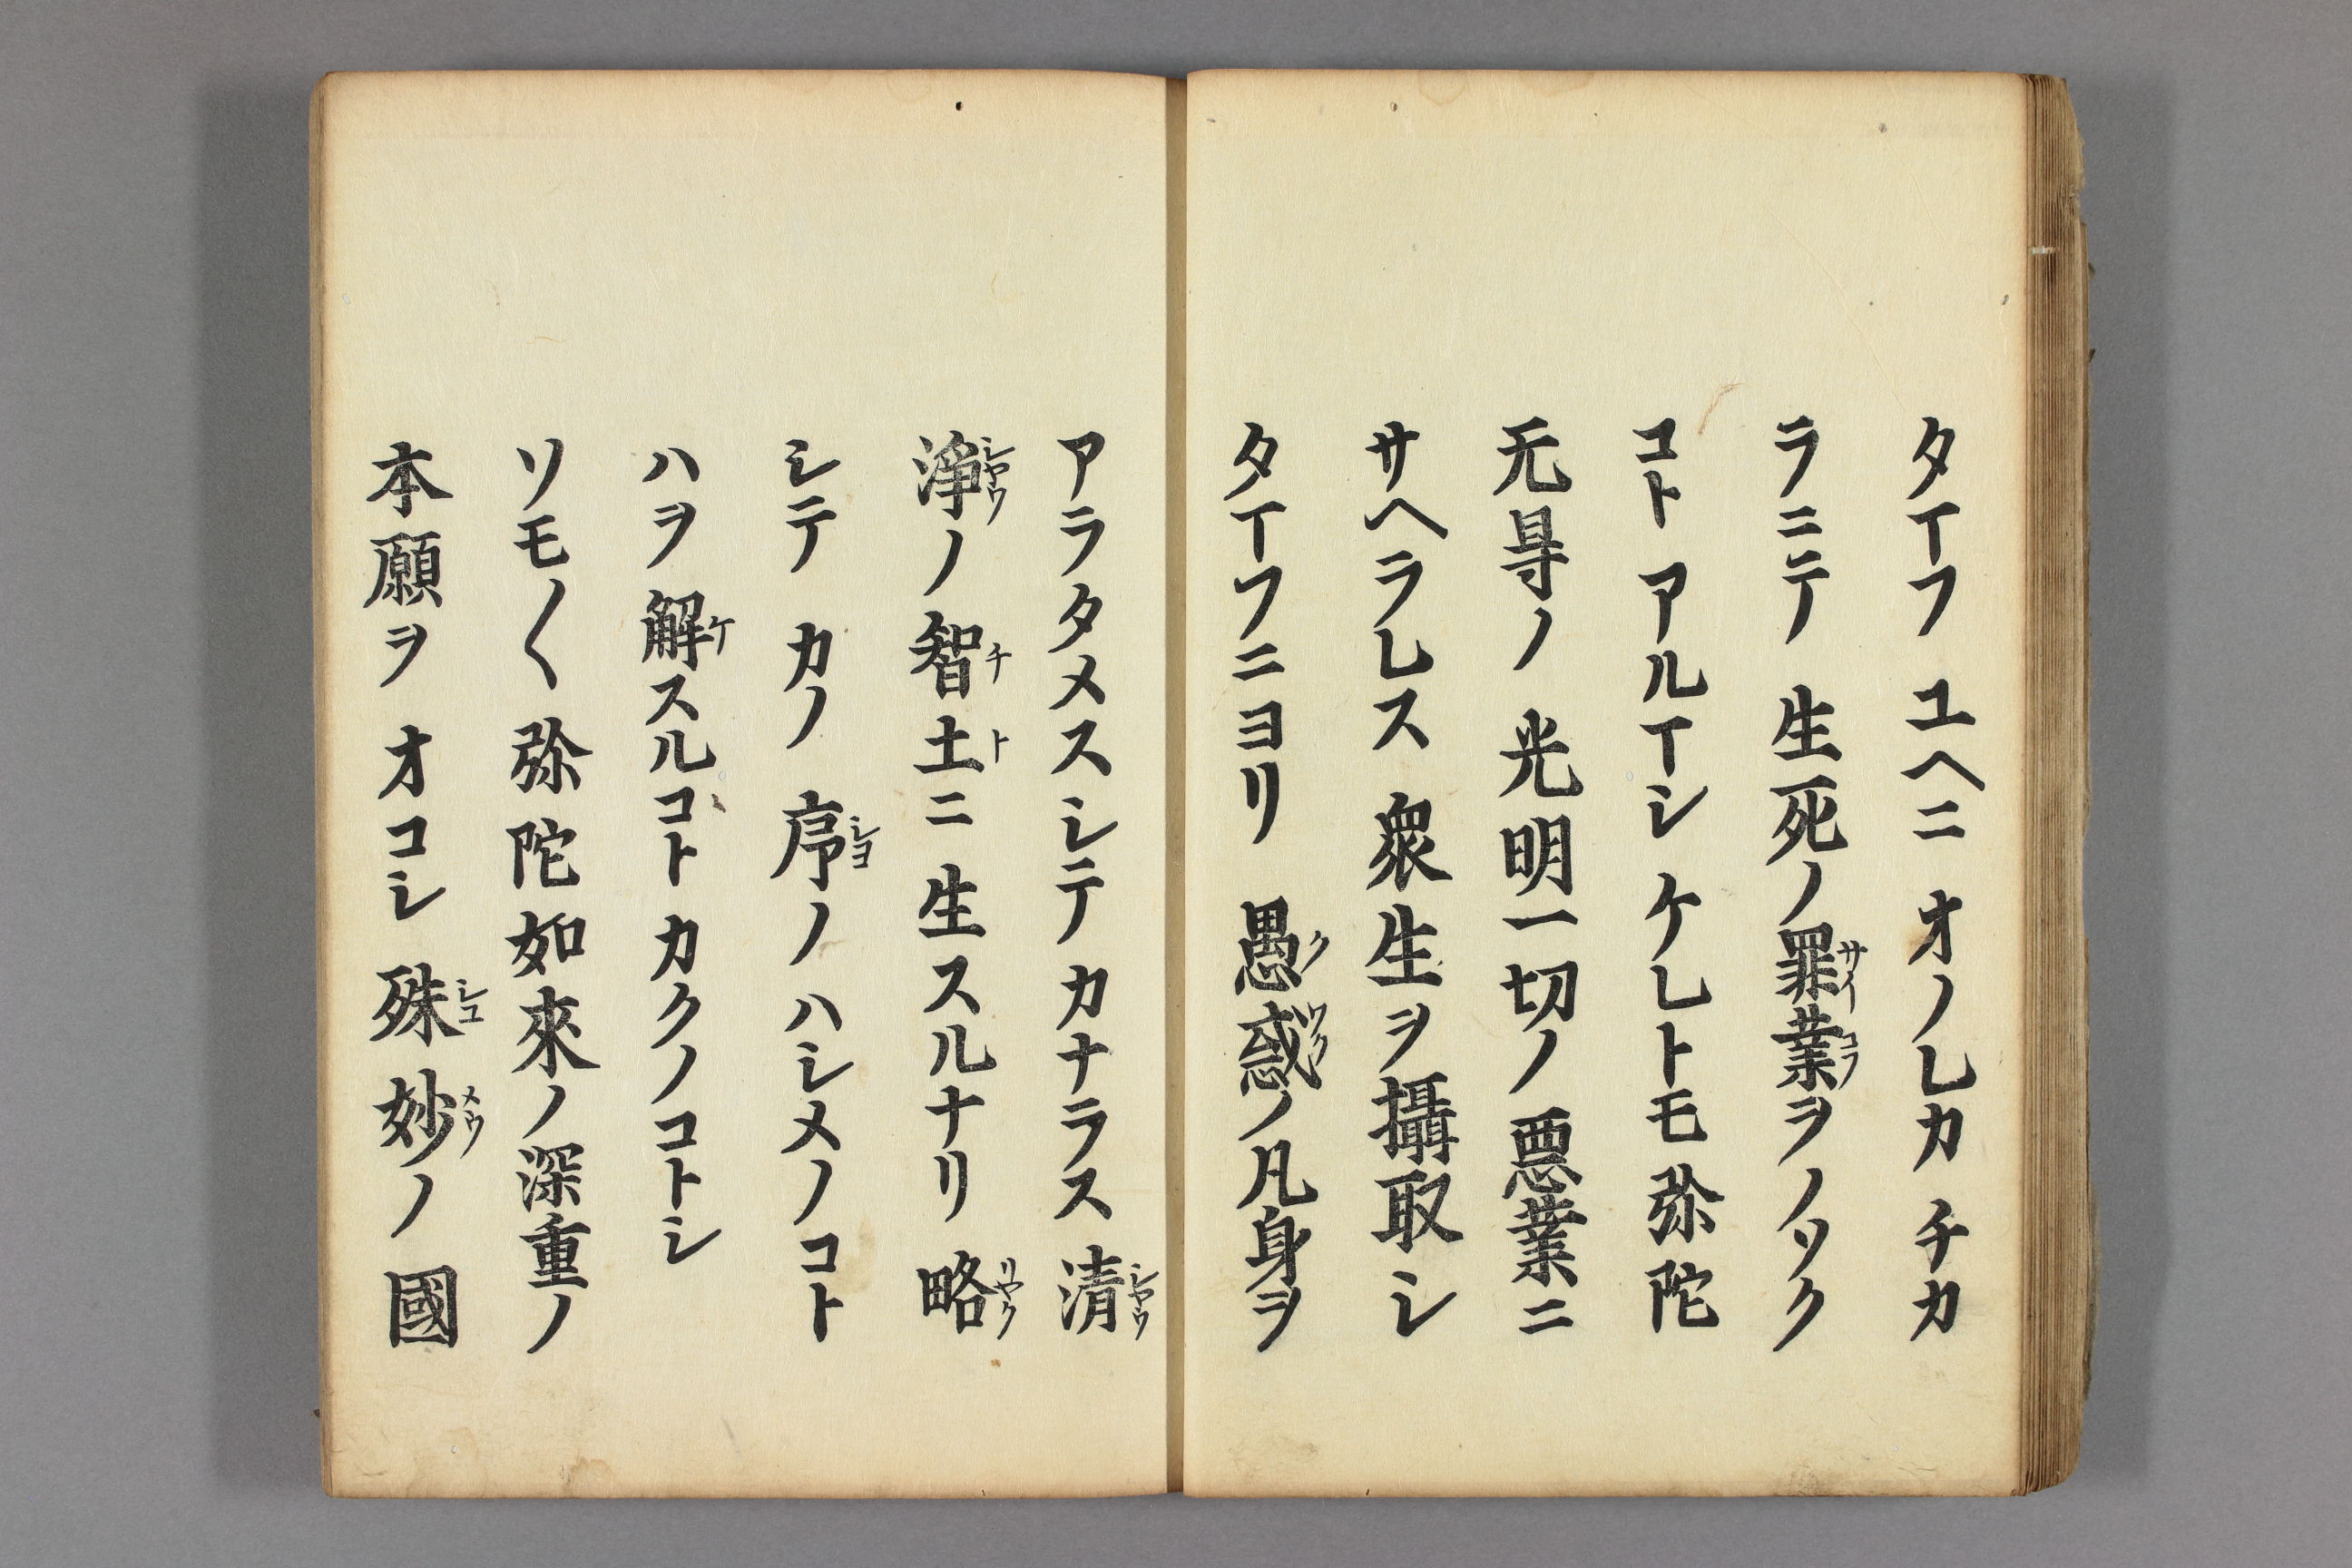 タイフ ユヘニ オノレカ チカ
ラニテ 生死ノ罪業ヲノソク
コト アルイシ ケレトモ 弥陀
无㝵ノ 光明一切ノ 悪業ニ
サヘラレス 衆生ヲ攝取シ
タイフニヨリ 愚惑ノ凡身ヲ
アラタメスシテ カナラス 清
浄ノ 智土ニ 生スルナリ 略
シテ カノ 序ノ ハシメノコト
ハヲ 解スルコト カクノコトシ
ソモ〱 弥陀如來ノ深重ノ
本願ヲ オコシ 殊妙ノ 國